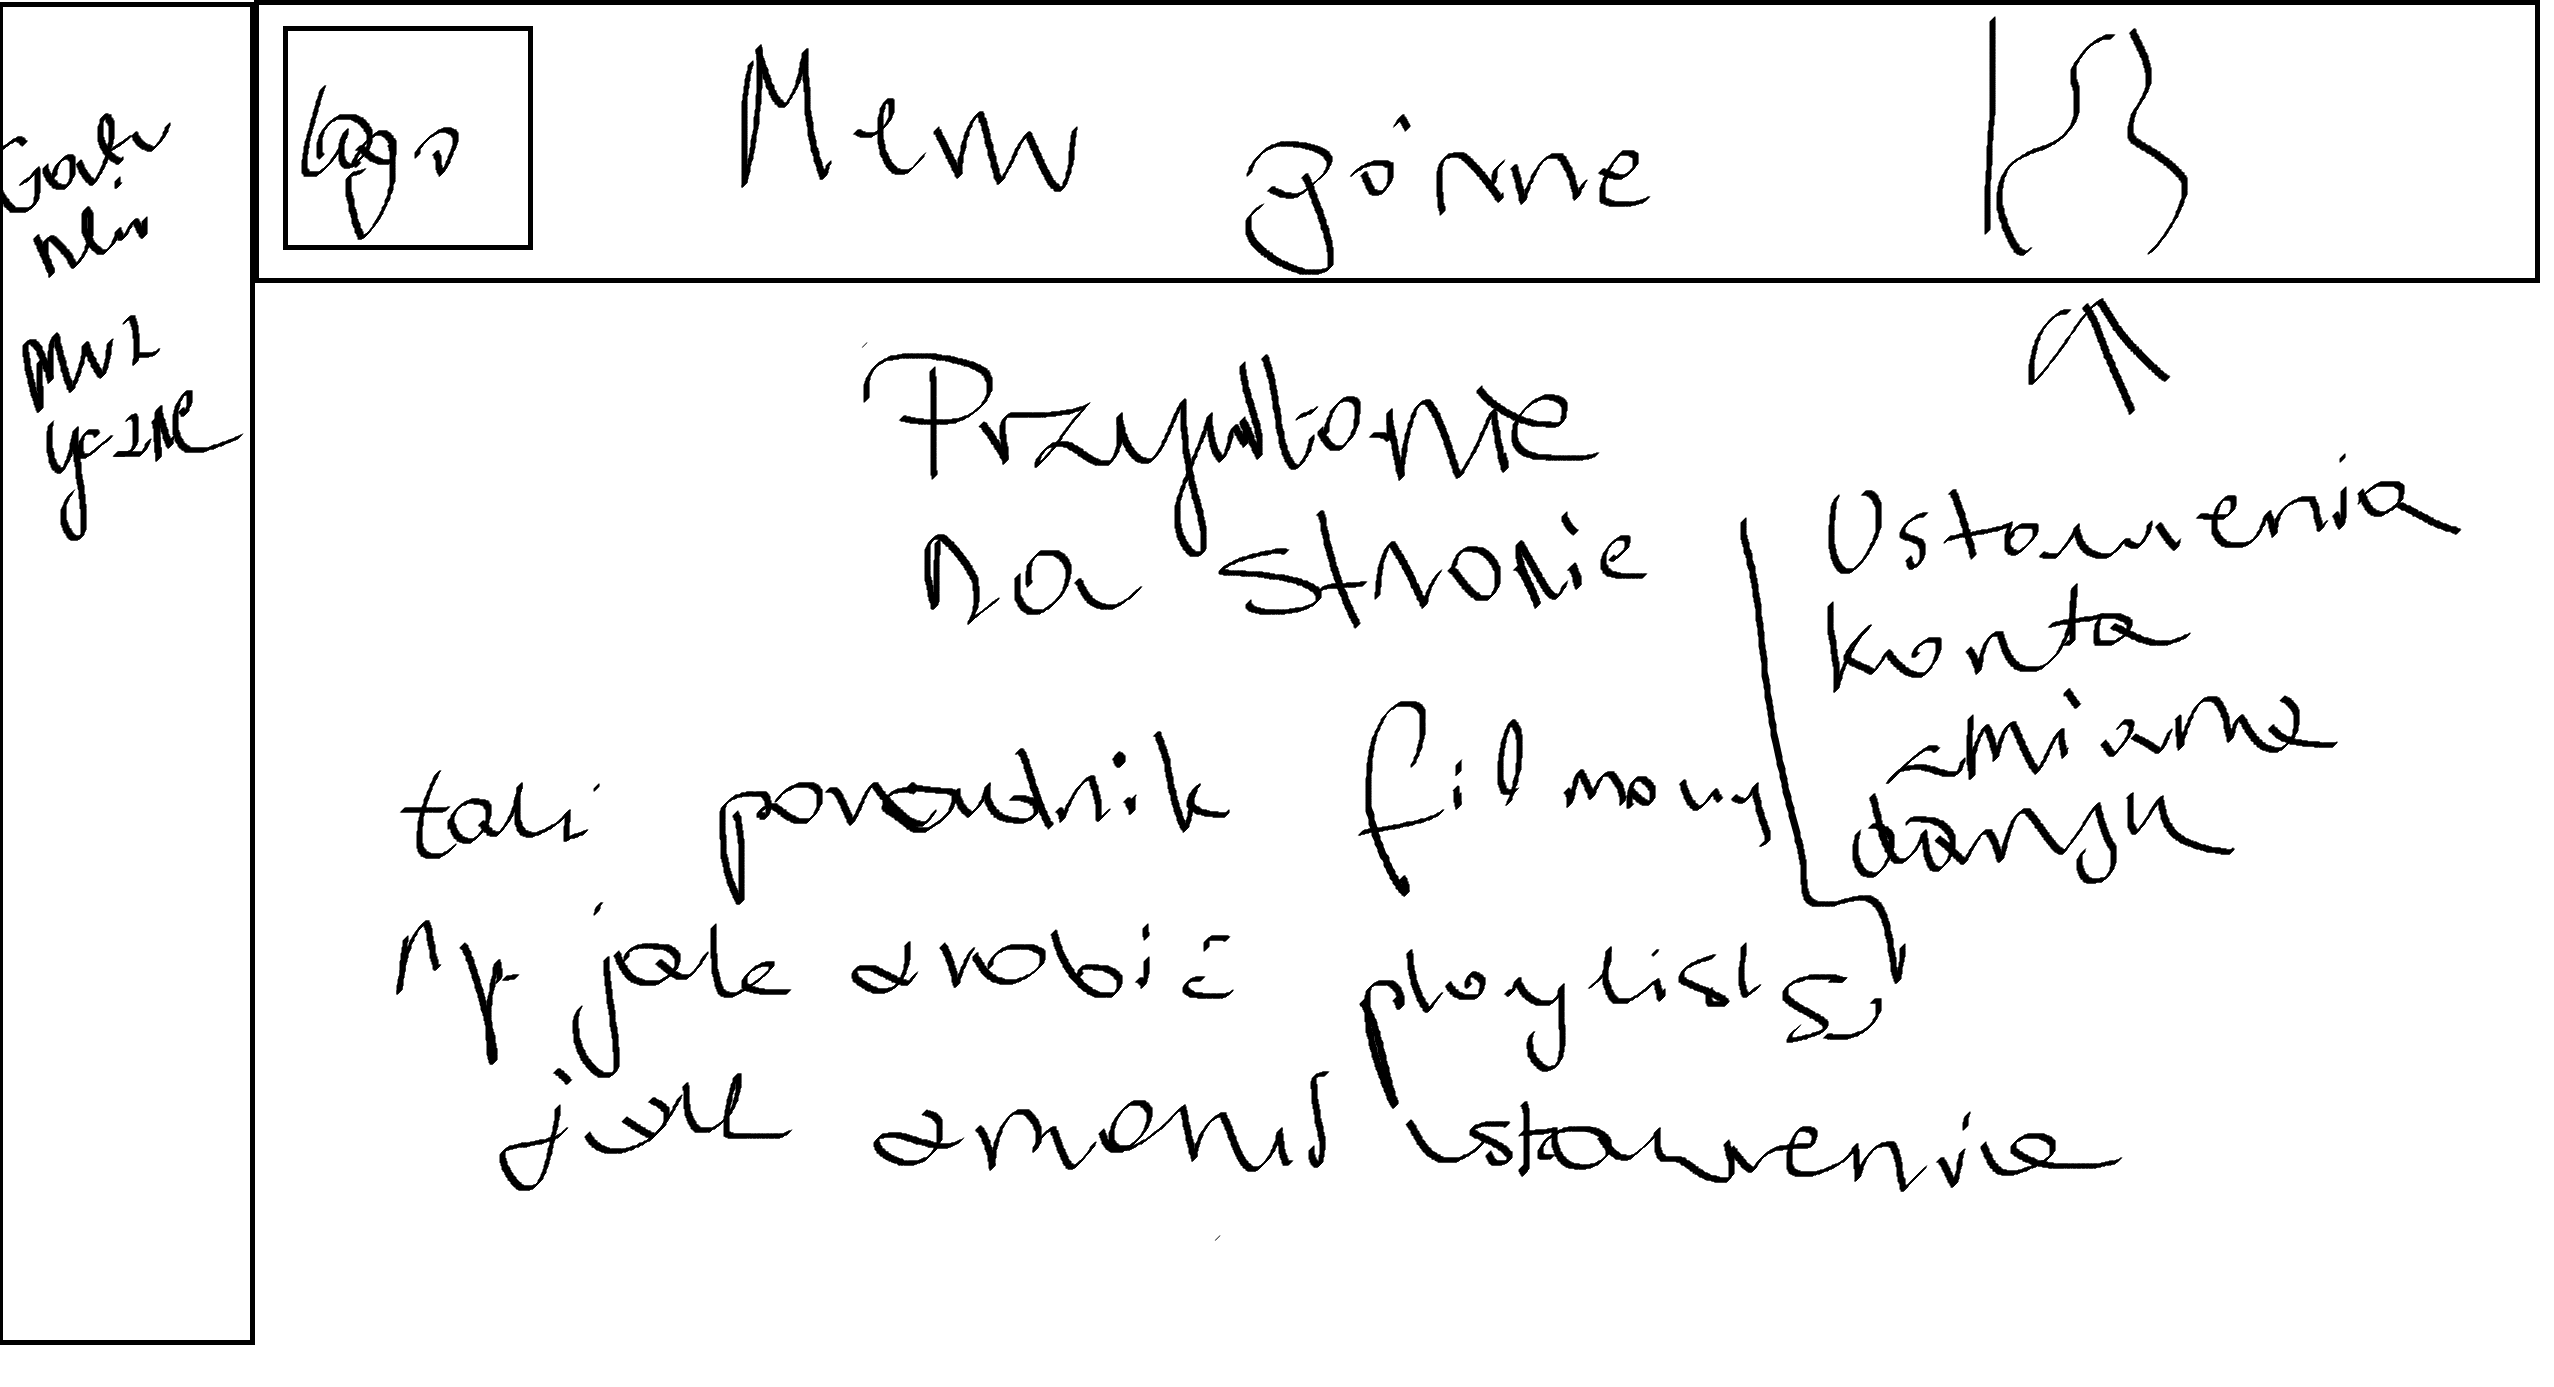 logo
Menu górne
Przywitanie
na stronie
Ustawienia
konta
zmiana
danych
taki poradnik filmowy
np jak zrobić playlistę
jak zmienić ustawienia